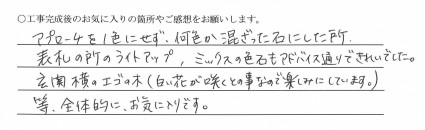 ○工事完成後のお気に入りの箇所やご感想をお願いします。
アプローチを1色にせず、何色か混ざった石にした所.
表札の所のライトアップ, ミックスの色石もアドバイス通りできれいでした。
玄関横のエゴの木(白い花が咲くとの事なので楽しみにしています。)
等、全体的に、お気に入りです。